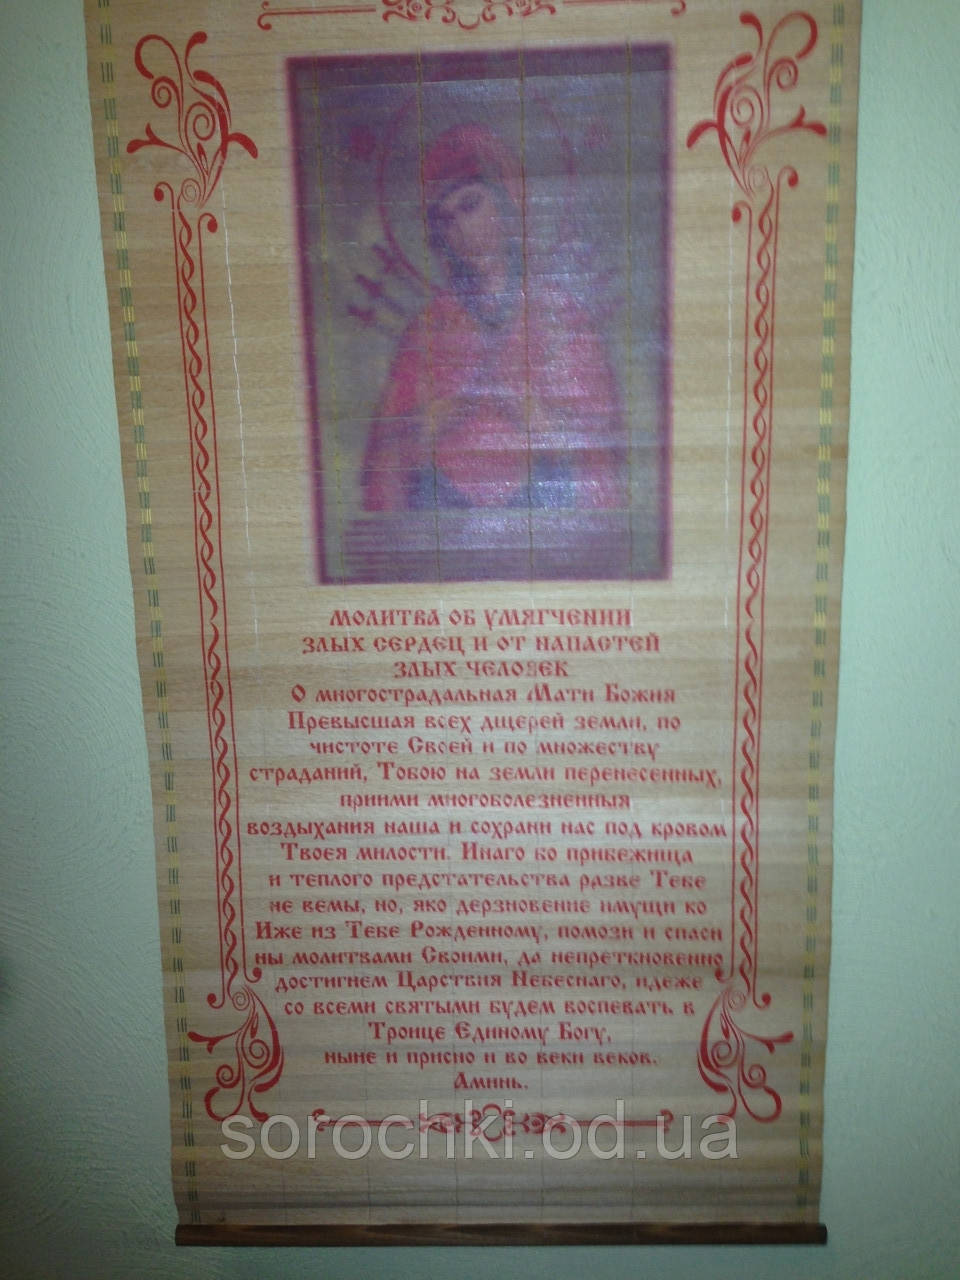 Молитва об умягчении
злых сердец и от напастей
злых человек
О многострадальная Мати Божия
Превысшая всех дщерей земли, по
чистоте Своей и по множеству
страданий, Тобою на земли перенесенных,
приими многоболезненныя
воздыхания наша и сохрани нас под кровом
Твоея милости. Инаго бо прибежища
и теплого предстательства разве Тебе
не вемы, но, яко дерзновение имущи ко
Иже из Тебе Рожденному, помози и спаси
ны молитвами Своими, да непреткновенно
достигнем Царствия Небеснаго, идеже
со всеми святыми будем воспевать в
Троице Единому Богу,
ныне и присно и во веки веков.
Аминь.
sorochki.od.ua